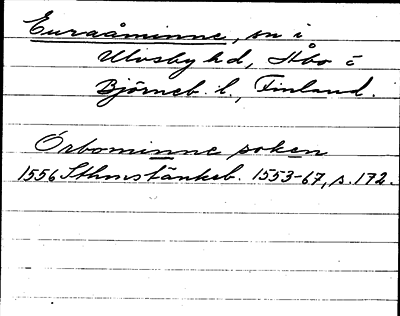 Euraåminne, sn i
Ulvsby hd, Åbo o
Björneb. l., Finland.
Örbominne soken
1556 Sthmstänkeb. 1553-67, s. 172.